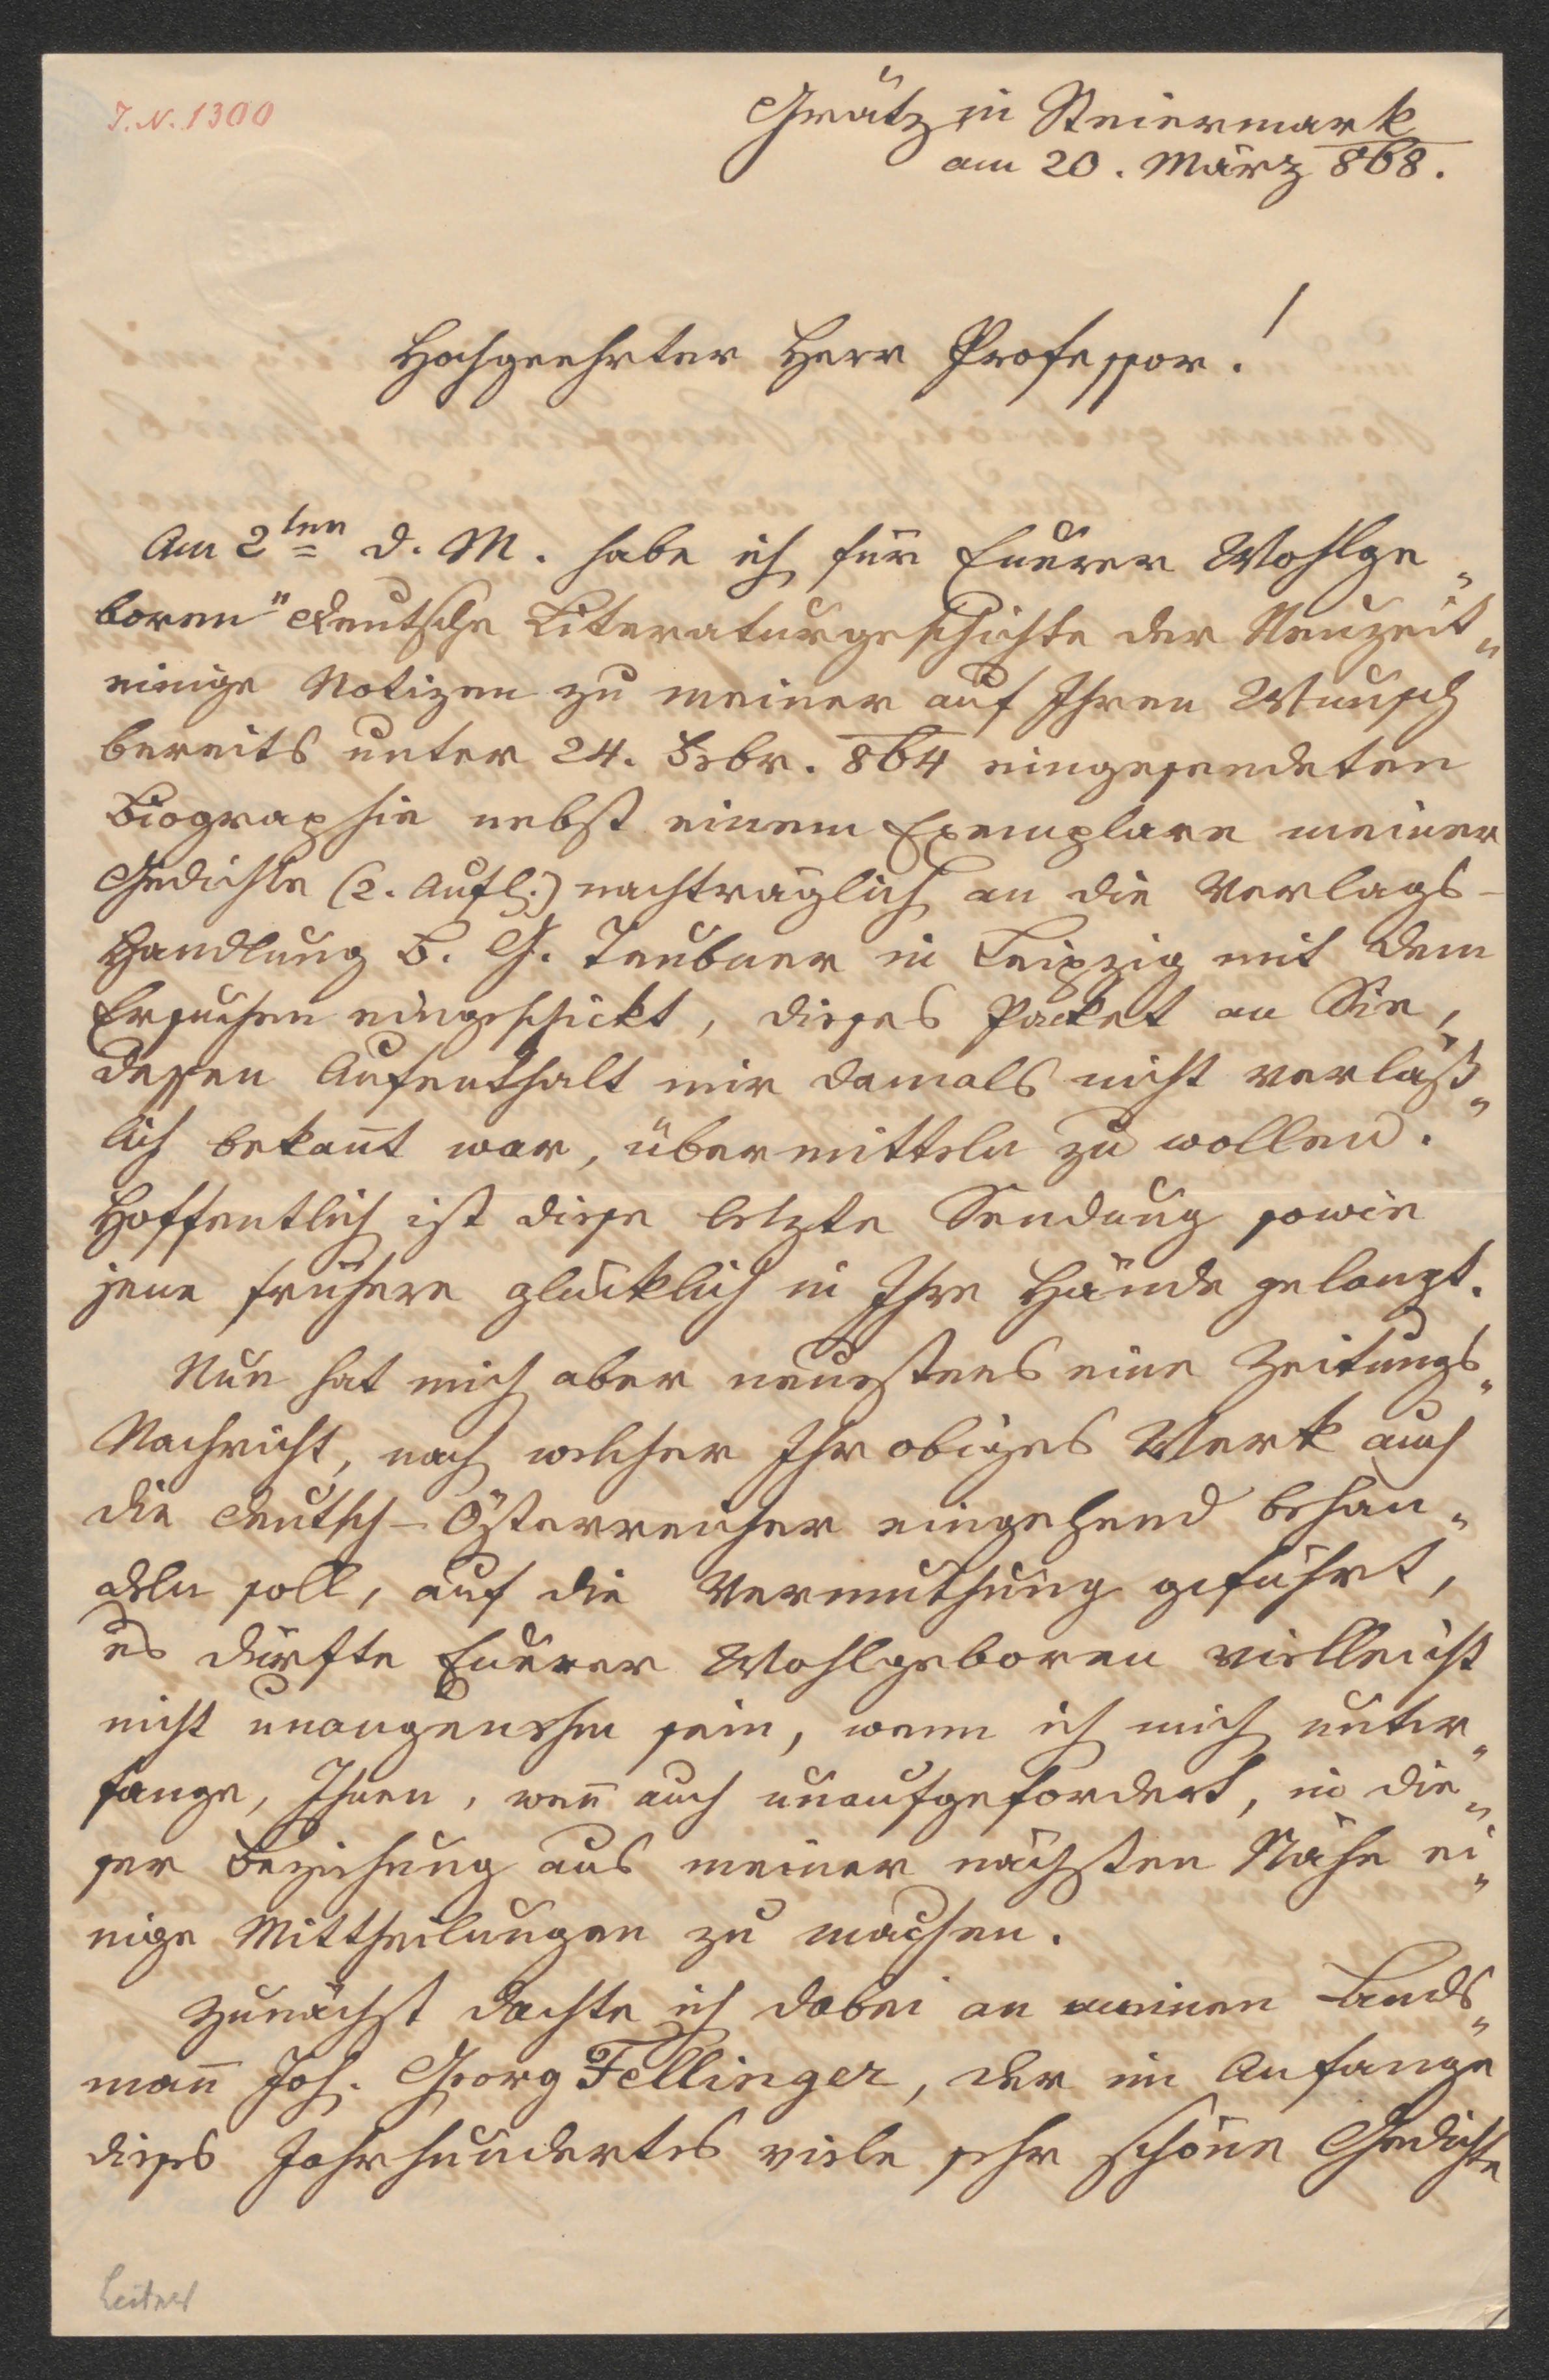 J. N. 1300
Grätz in Steiermark
am 20. März 868.
Hochgeehrter Herr Professor!
Am 2ten d. M. habe ich für Euerer Wohlge„
boren "deutsche Literaturgeschichte der Neuzeit„
einige Notizen zu meiner auf Ihren Wunsch
bereits unter 24. Febr. 864 eingesendeten
Biographie nebst einem Exemplare meiner
Gedichte (2. Aufl.) nachträglich an die Verlags-
handlung B. G. Teubner in Leipzig mit dem
Ersuchen eingeschickt, dieses Packet an Sie,
dessen Aufenthalt mir damals nicht verläß„
lich bekañt war, übermitteln zu wollen.
Hoffentlich ist diese letzte Sendung sowie
jene frühere glücklich in Ihre Hände gelangt.
Nun hat mich aber neuestens eine Zeitungs„
Nachricht, nach welcher Ihr obiges Werk auch
die deutsch-Österreicher eingehend behan„
deln soll, auf die Vermuthung geführt,
es dürfte Euerer Wohlgeboren vielleicht
nicht unangenehm sein, wenn ich mich unter„
fange, Ihnen, weñ auch unaufgefordert, in die„
ser Beziehung aus meiner nächsten Nähe ei„
nige Mittheilungen zu machen.
Zunächst dachte ich dabei an meinen Lands„
mañ Joh. Georg Fellinger, der im Anfange
dieses Jahrhundertes viele sehr schöne Gedichte
Leitner